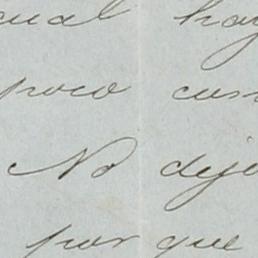 cual hay
poco con
No dejo
por que